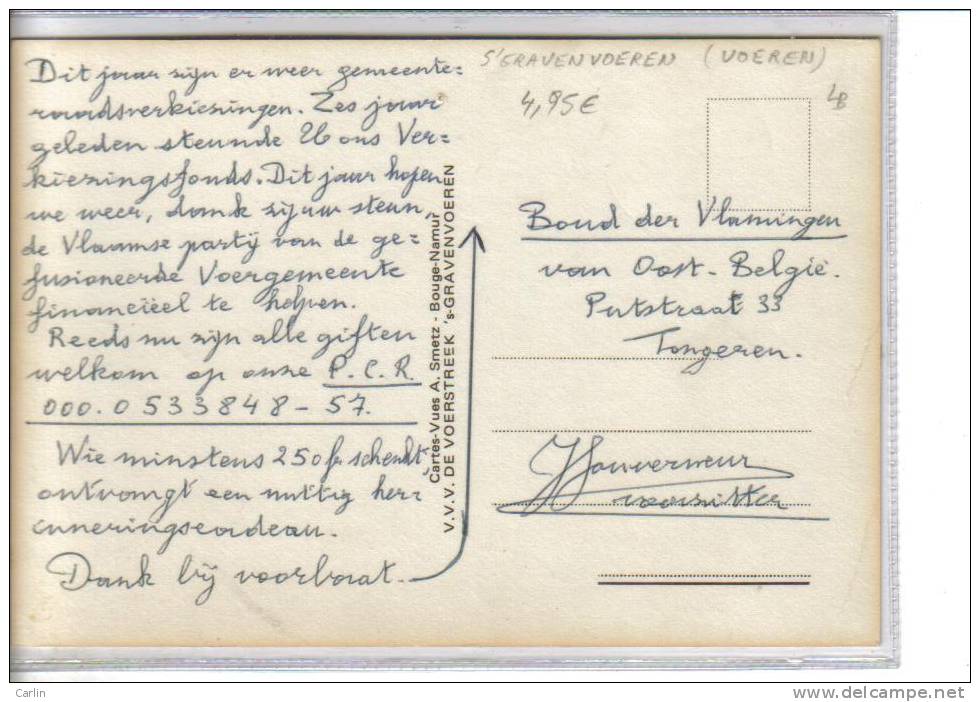 Dit jaar zijn er weer gemeente=
raadsverkiezingen. Zes jaar
geleden steunde U ons Ver=
kiezingsfonds. Dit jaar hopen
we weer, dank zij uw steun,
de Vlaamse partij van de ge=
fusioneerde Voergemeente
financieel te helpen.
Reeds nu zijn alle giften
welkom op onze P.C.R.
000.0533848-57.
Wie minstens 250 fr schenkt
ontvangt een nuttig her=
inneringscadeau.
Dank bij voorbaat.
Cartes-Vues A. Smetz - Bouge-Namur
V.V.V. DE VOERSTREEK 's-GRAVENVOEREN
S'GRAVENVOEREN (VOEREN)
4,95€
LB
Bond der Vlamingen
van Oost-België.
Putstraat 33
Tongeren.
voorzitter
Carlin
www.delcampe.net